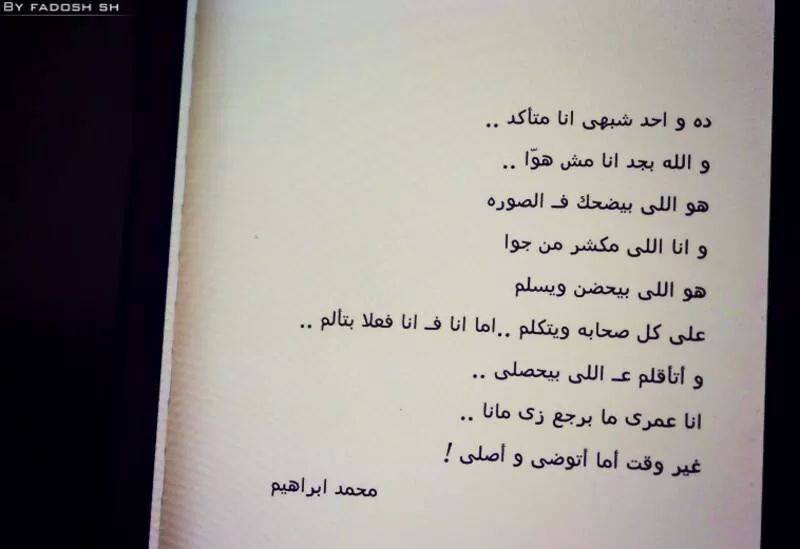 BY FADOSH SH
ده و احد شبهى انا متأكد ..
و الله بجد انا مش هوّا ..
هو اللى بيضحك فـ الصوره
و انا اللى مكشر من جوا
هو اللى بيحضن ويسلم
على كل صحابه ويتكلم ..اما انا فـ انا فعلا بتألم ..
و أتأقلم عـ اللى بيحصلى ..
انا عمرى ما برجع زى مانا ..
غير وقت أما أتوضى و أصلى !
محمد ابراهيم